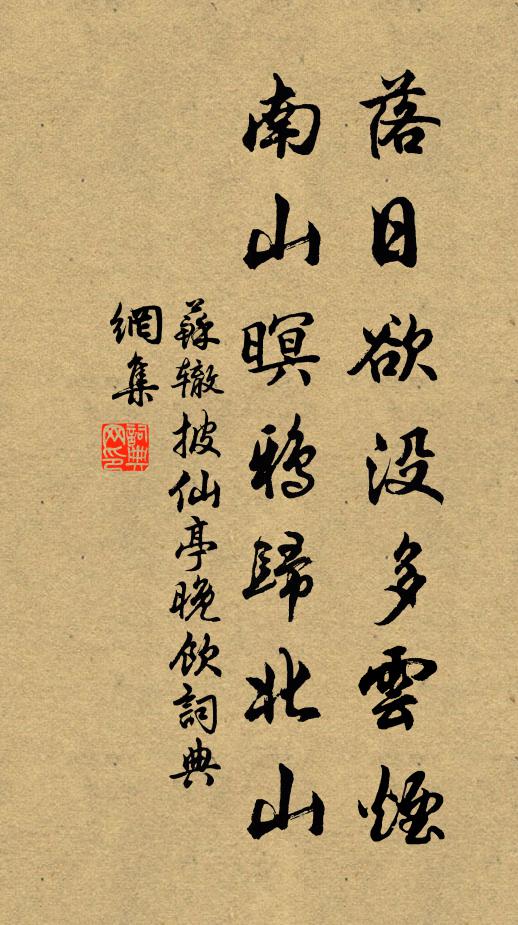 落日欲没多雲煙
南山暝鴉歸北山
蘇辙披仙亭晚飲詞典
網集
詞典网印